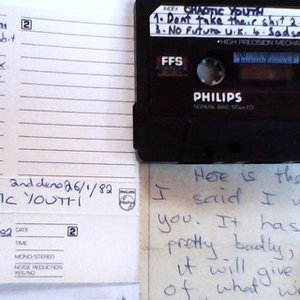 INDEX CHAOTIC YOUTH
1. Dont take their shit 2
3. No Future U.K. 4. Sadso
• HIGH PRECISION MECHA
FFS
PHILIPS
NORMAL BIAS 120µs EQ
2
2nd demo 26/1/82
IC YOUTH
PHILIPS
82
DATE
2
TIME
MONO/STEREO
NOISE REDUCTION
YES/NO
Here is the
I said I w
you. It has
pretty badly,
it will give
of what we